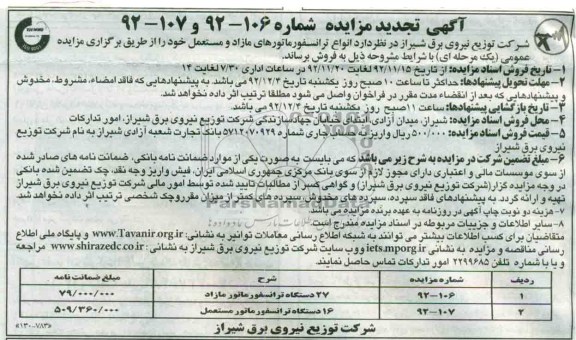 آگهی تجدید مزایده شماره ۱۰۶-۹۲ و ۱۰۷-۹۲
شرکت توزیع نیروی برق شیراز در نظر دارد انواع ترانسفورماتورهای مازاد و مستعمل خود را از طریق برگزاری مزایده
عمومی (یک مرحله ای) با شرایط مشروحه ذیل به فروش برساند.
۱- تاریخ فروش اسناد مزایده: از تاریخ ۹۲/۱۱/۱۵ لغایت ۹۲/۱۱/۲۰ در ساعات اداری ۷/۳۰ لغایت ۱۴
۲- مهلت تحویل پیشنهادها: حداکثر تا ساعت ۱۰ صبح روز یکشنبه تاریخ ۹۲/۱۲/۴ می باشد. به پیشنهادهایی که فاقد امضاء، مشروط، مخدوش
و پیشنهادهایی که بعد از انقضاء مدت مقرر در فراخوان واصل می شود مطلقا ترتیب اثر داده نخواهد شد.
۳- تاریخ بازگشایی پیشنهادها: ساعت ۱۱ صبح روز یکشنبه تاریخ ۹۲/۱۲/۴ می باشد.
۴- محل فروش اسناد مزایده: شیراز، میدان آزادی، ابتدای خیابان جهادسازندگی شرکت توزیع نیروی برق شیراز، امور تدارکات
۵- قیمت فروش اسناد مزایده: ۵۰۰/۰۰۰ ریال واریز به حساب جاری شماره ۵۷۱۲۰۷۰۹۲۹ بانک تجارت شعبه آزادی شیراز به نام شرکت توزیع
نیروی برق شیراز
۶- مبلغ تضمین شرکت در مزایده به شرح زیر می باشد که می بایست به صورت یکی از موارد ضمانت نامه بانکی، ضمانت نامه های صادر شده
از سوی موسسات مالی و اعتباری دارای مجوز لازم از سوی بانک مرکزی جمهوری اسلامی ایران، فیش واریز وجه نقد، چک تضمین شده بانکی
در وجه مزایده گزار (شرکت توزیع نیروی برق شیراز) و گواهی کسر از مطالبات تایید شده توسط امور مالی شرکت توزیع نیروی برق شیراز
تهیه و ارائه گردد. به پیشنهادهای فاقد سپرده، سپرده های مخدوش، سپرده های کمتر از میزان مقرر و چک شخصی ترتیب اثر داده نخواهد شد.
۷- هزینه دو نوبت چاپ آگهی در روزنامه به عهده برنده مزایده می باشد.
۸- سایر اطلاعات و جزییات مربوطه در اسناد مزایده مندرج است.
متقاضیان برای کسب اطلاعات بیشتر می توانند به شبکه اطلاع رسانی معاملات توانیر به نشانی: www.Tavanir.org.ir و پایگاه ملی اطلاع
رسانی مناقصه و مزایده به نشانی iets.mporg.ir و وب سایت شرکت توزیع نیروی برق شیراز به نشانی: www.shirazedc.co.ir مراجعه
و یا با شماره تلفن ۲۲۹۹۶۸۵ امور تدارکات تماس حاصل نمایند.
ردیف شماره مزایده شرح مبلغ ضمانت نامه
۱ ۹۲-۱۰۶ ۲۷ دستگاه ترانسفورماتور مازاد ۷۹/۰۰۰/۰۰۰
۲ ۹۲-۱۰۷ ۱۶ دستگاه ترانسفورماتور مستعمل ۵۰۹/۳۶۰/۰۰۰
شرکت توزیع نیروی برق شیراز